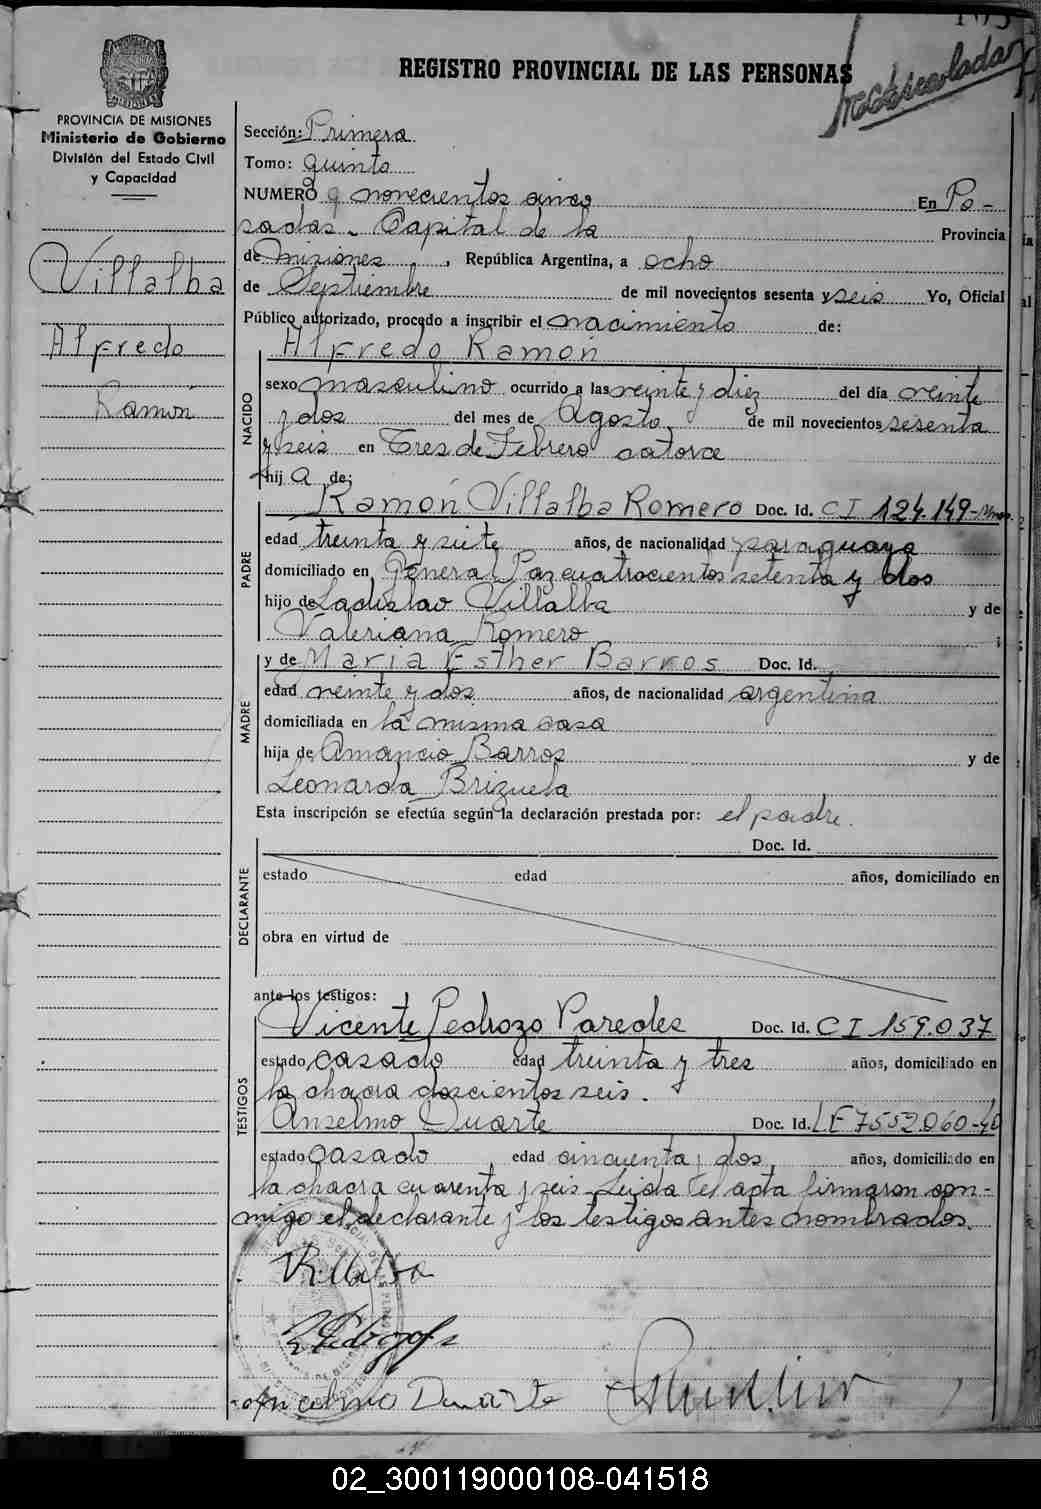 REGISTRO PROVINCIAL DE LAS PERSONAS
PROVINCIA DE MISIONES
Ministerio de Gobierno
División del Estado Civil
y Capacidad
Villalba
Alfredo
Ramón
Sección: Primera
Tomo: quinto
NUMERO novecientos cinco En Po-
sadas. Capital de la Provincia
de Misiones, República Argentina, a ocho
de Septiembre de mil novecientos sesenta y seis Yo, Oficial
Público autorizado, procedo a inscribir el nacimiento de:
NACIDO
Alfredo Ramón
sexo masculino ocurrido a las veinte y diez del día veinte
y dos del mes de Agosto de mil novecientos sesenta
y seis en Tres de Febrero catorce
hij de:
PADRE
Ramón Villalba Romero Doc. Id. CI 124.149
edad treinta y siete años, de nacionalidad paraguaya
domiciliado en General Paz cuatrocientos setenta y dos
hijo de Ladislao Villalba y de
Valeriana Romero
MADRE
y de Maria Esther Barros Doc. Id.
edad veinte y dos años, de nacionalidad argentina
domiciliada en la misma casa
hija de Amancio Barros y de
Leonarda Brizuela
Esta inscripción se efectúa según la declaración prestada por: el padre.
DECLARANTE
Doc. Id.
estado edad años, domiciliado en
obra en virtud de
ante los testigos:
TESTIGOS
Vicente Pedrozo Paredes Doc. Id. CI 159.037
estado casado edad treinta y tres años, domiciliado en
la chacra doscientos seis.
Anselmo Duarte Doc. Id. LE 7552.060
estado casado edad cincuenta y dos años, domiciliado en
la chacra cuarenta y seis. Leida el acta firmaron con-
migo el declarante y los testigos antes nombrados.
Villalba
Duarte
02_300119000108-041518